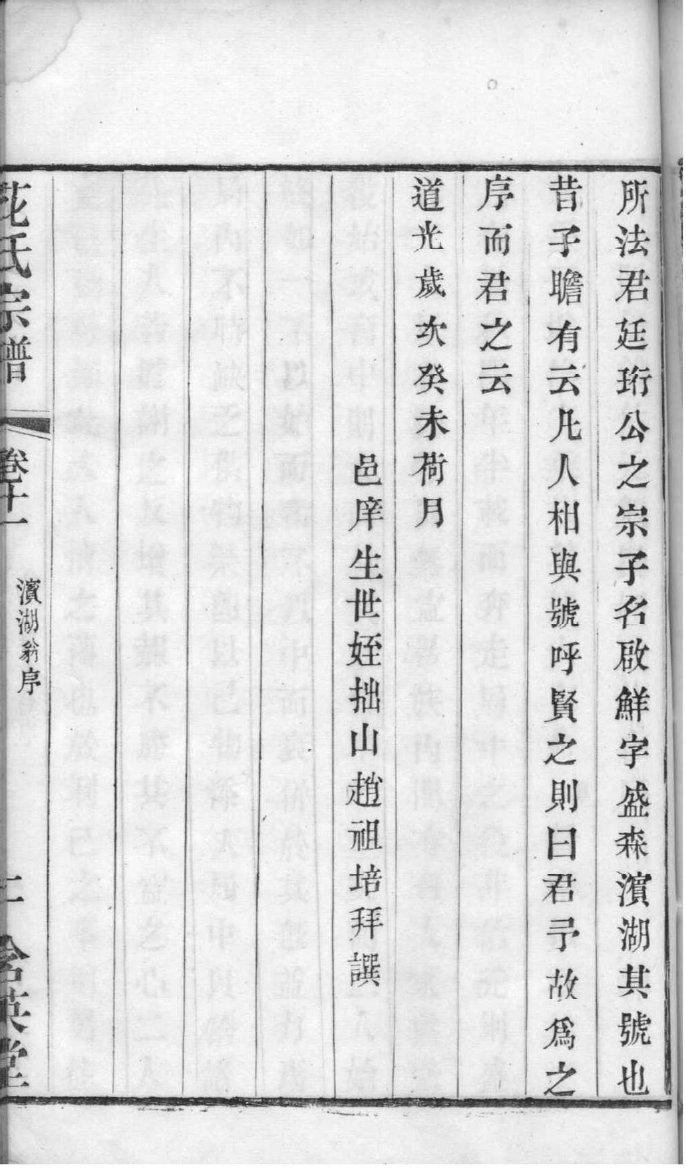 所法君廷珩公之宗子名啟鮮字盛森濱湖其號也
昔子瞻有云凡人相與號呼賢之則曰君予故爲之
序而君之云
道光歲次癸未荷月
邑庠生世姪拙山趙祖培拜譔
花氏宗譜
卷十一
濱湖翁序
二
含英堂